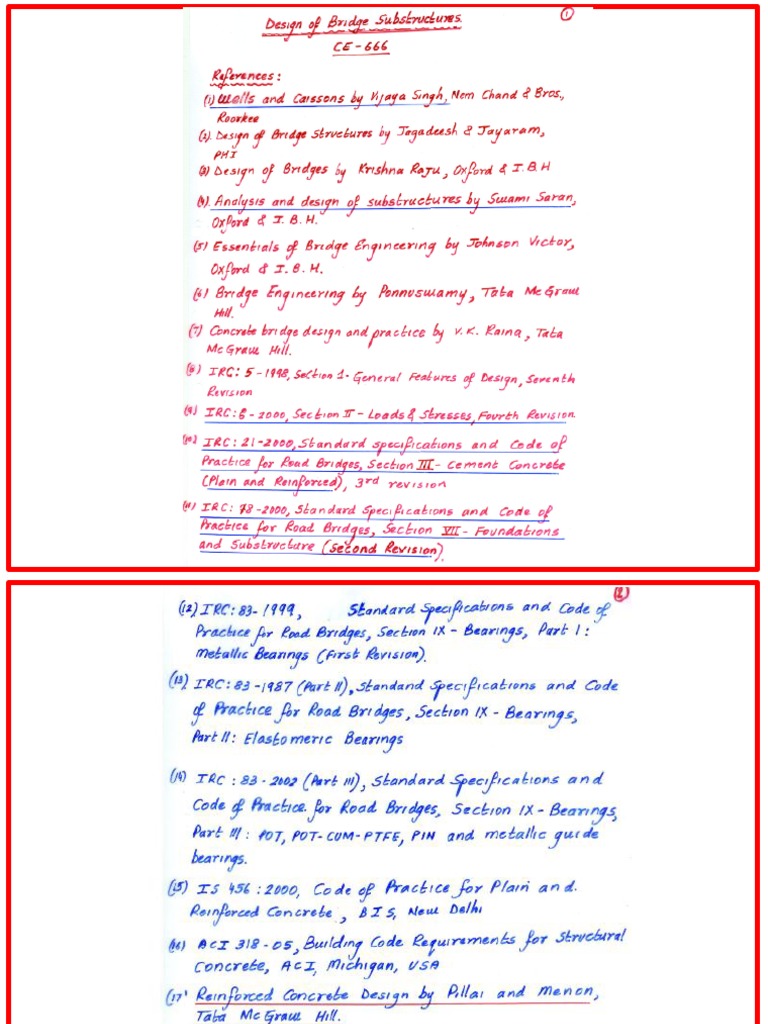 Design of Bridge Substructures
①
CE-666
References:
(1) Wells and Caissons by Vijaya Singh, Nem Chand & Bros.,
Roorkee
(2). Design of Bridge Structures by Jagadeesh & Jayaram,
PHI
(3) Design of Bridges by Krishna Raju, Oxford & I.B.H
(4). Analysis and design of substructures by Swami Saran,
Oxford & I.B.H.
(5) Essentials of Bridge Engineering by Johnson Victor,
Oxford & I.B.H.
(6) Bridge Engineering by Ponnuswamy, Tata McGraw
Hill.
(7) Concrete bridge design and practice by V.K. Raina, Tata
McGraw Hill.
(8) IRC: 5-1998, Section 1- General Features of Design, Seventh
Revision
(9) IRC:6-2000, Section II - Loads & Stresses, Fourth Revision.
(10) IRC: 21-2000, Standard specifications and Code of
Practice for Road Bridges, Section III - Cement Concrete
(Plain and Reinforced), 3rd revision
(11) IRC: 78-2000, Standard Specifications and Code of
Practice for Road Bridges, Section VII - Foundations
and Substructure (Second Revision).
②
(12) IRC: 83-1999, Standard Specifications and Code of
Practice for Road Bridges, Section IX - Bearings, Part I:
Metallic Bearings (First Revision).
(13) IRC: 83-1987 (Part II), Standard Specifications and Code
of Practice for Road Bridges, Section IX - Bearings,
Part II: Elastomeric Bearings
(14) IRC: 83-2002 (Part III), Standard Specifications and
Code of Practice for Road Bridges, Section IX - Bearings,
Part III: POT, POT-CUM-PTFE, PIN and metallic guide
bearings.
(15) IS 456:2000, Code of Practice for Plain and.
Reinforced Concrete, BIS, New Delhi
(16) ACI 318-05, Building Code Requirements for Structural
Concrete, ACI, Michigan, USA
(17) Reinforced Concrete Design by Pillai and Menon,
Tata McGraw Hill.